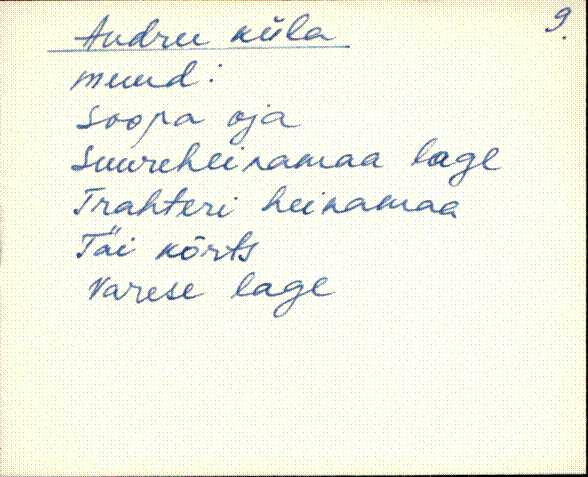 9.
Andru küla
muud:
Soopa oja
Suureheinamaa lage
Trahteri heinamaa
Täi kõrts
Varese lage